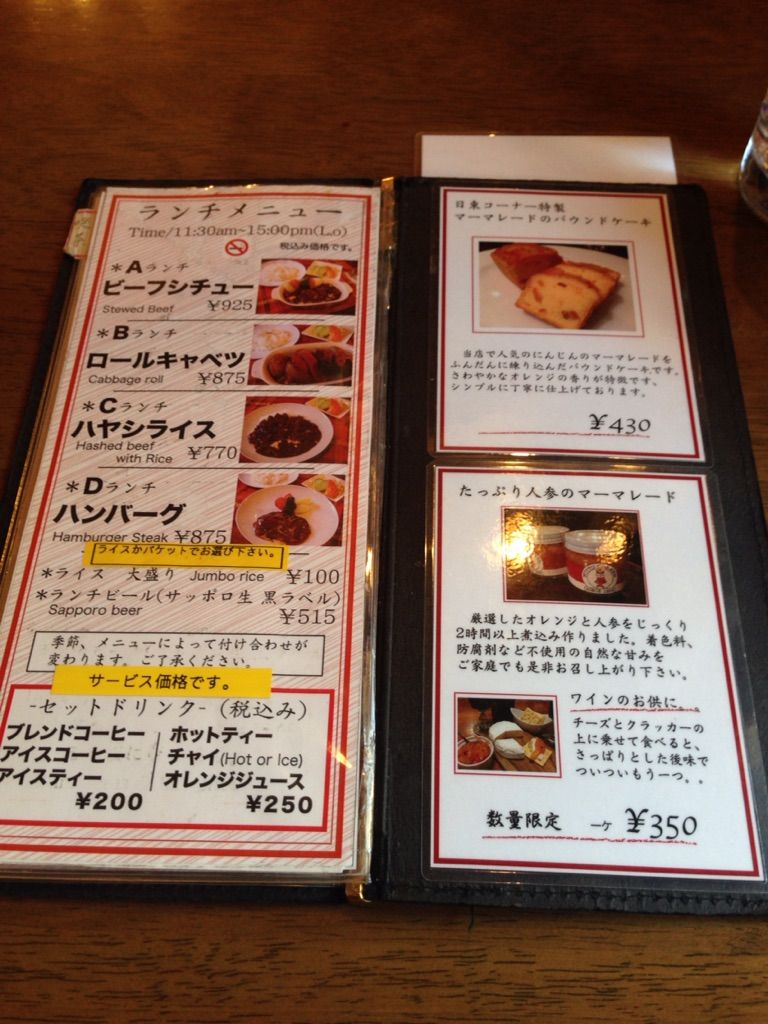 ランチメニュー
Time/11:30am~15:00pm(L.o)
税込み価格です。
*Aランチ
ビーフシチュー
Stewed Beef ¥925
*Bランチ
ロールキャベツ
Cabbage roll ¥875
*Cランチ
ハヤシライス
Hashed beef
with Rice ¥770
*Dランチ
ハンバーグ
Hamburger Steak ¥875
ライスかバケットでお選び下さい。
*ライス 大盛り Jumbo rice ¥100
*ランチビール(サッポロ生 黒ラベル)
Sapporo beer ¥515
季節、メニューによって付け合わせが
変わります。ご了承ください。
サービス価格です。
-セットドリンク-(税込み)
ブレンドコーヒー
アイスコーヒー
アイスティー
¥200
ホットティー
チャイ(Hot or Ice)
オレンジジュース
¥250
日東コーナー特製
マーマレードのパウンドケーキ
当店で人気のにんじんのマーマレードを
ふんだんに練り込んだパウンドケーキです。
さわやかなオレンジの香りが特徴です。
シンプルに丁寧に仕上げております。
¥430
たっぷり人参のマーマレード
厳選したオレンジと人参をじっくり
2時間以上煮込み作りました。着色料、
防腐剤など不使用の自然な甘みを
ご家庭でも是非お召し上がり下さい。
ワインのお供に。
チーズとクラッカーの
上に乗せて食べると、
さっぱりとした後味で
ついついもう一つ。。
数量限定 一ケ ¥350